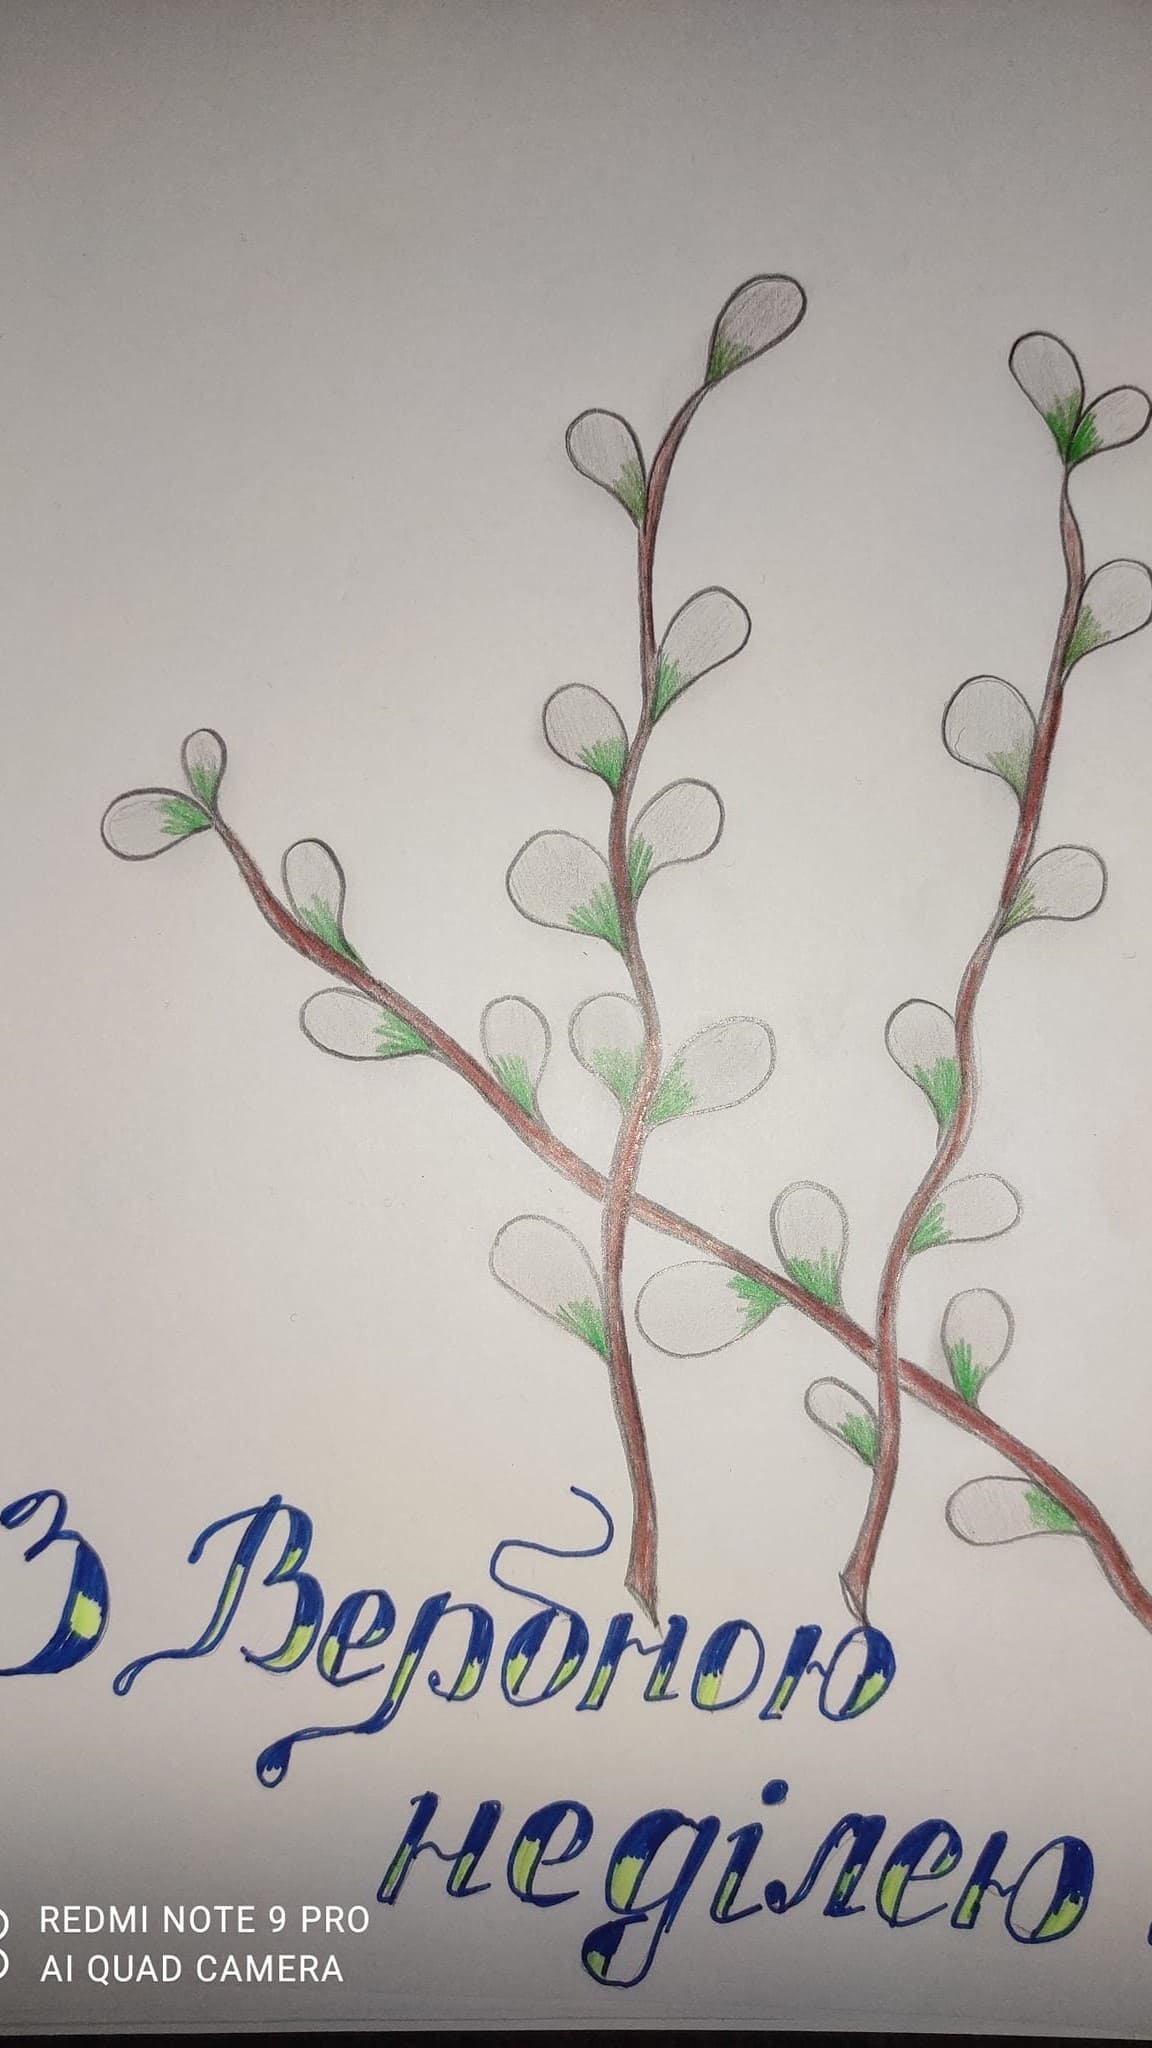 З Вербною
неділею
REDMI NOTE 9 PRO
AI QUAD CAMERA